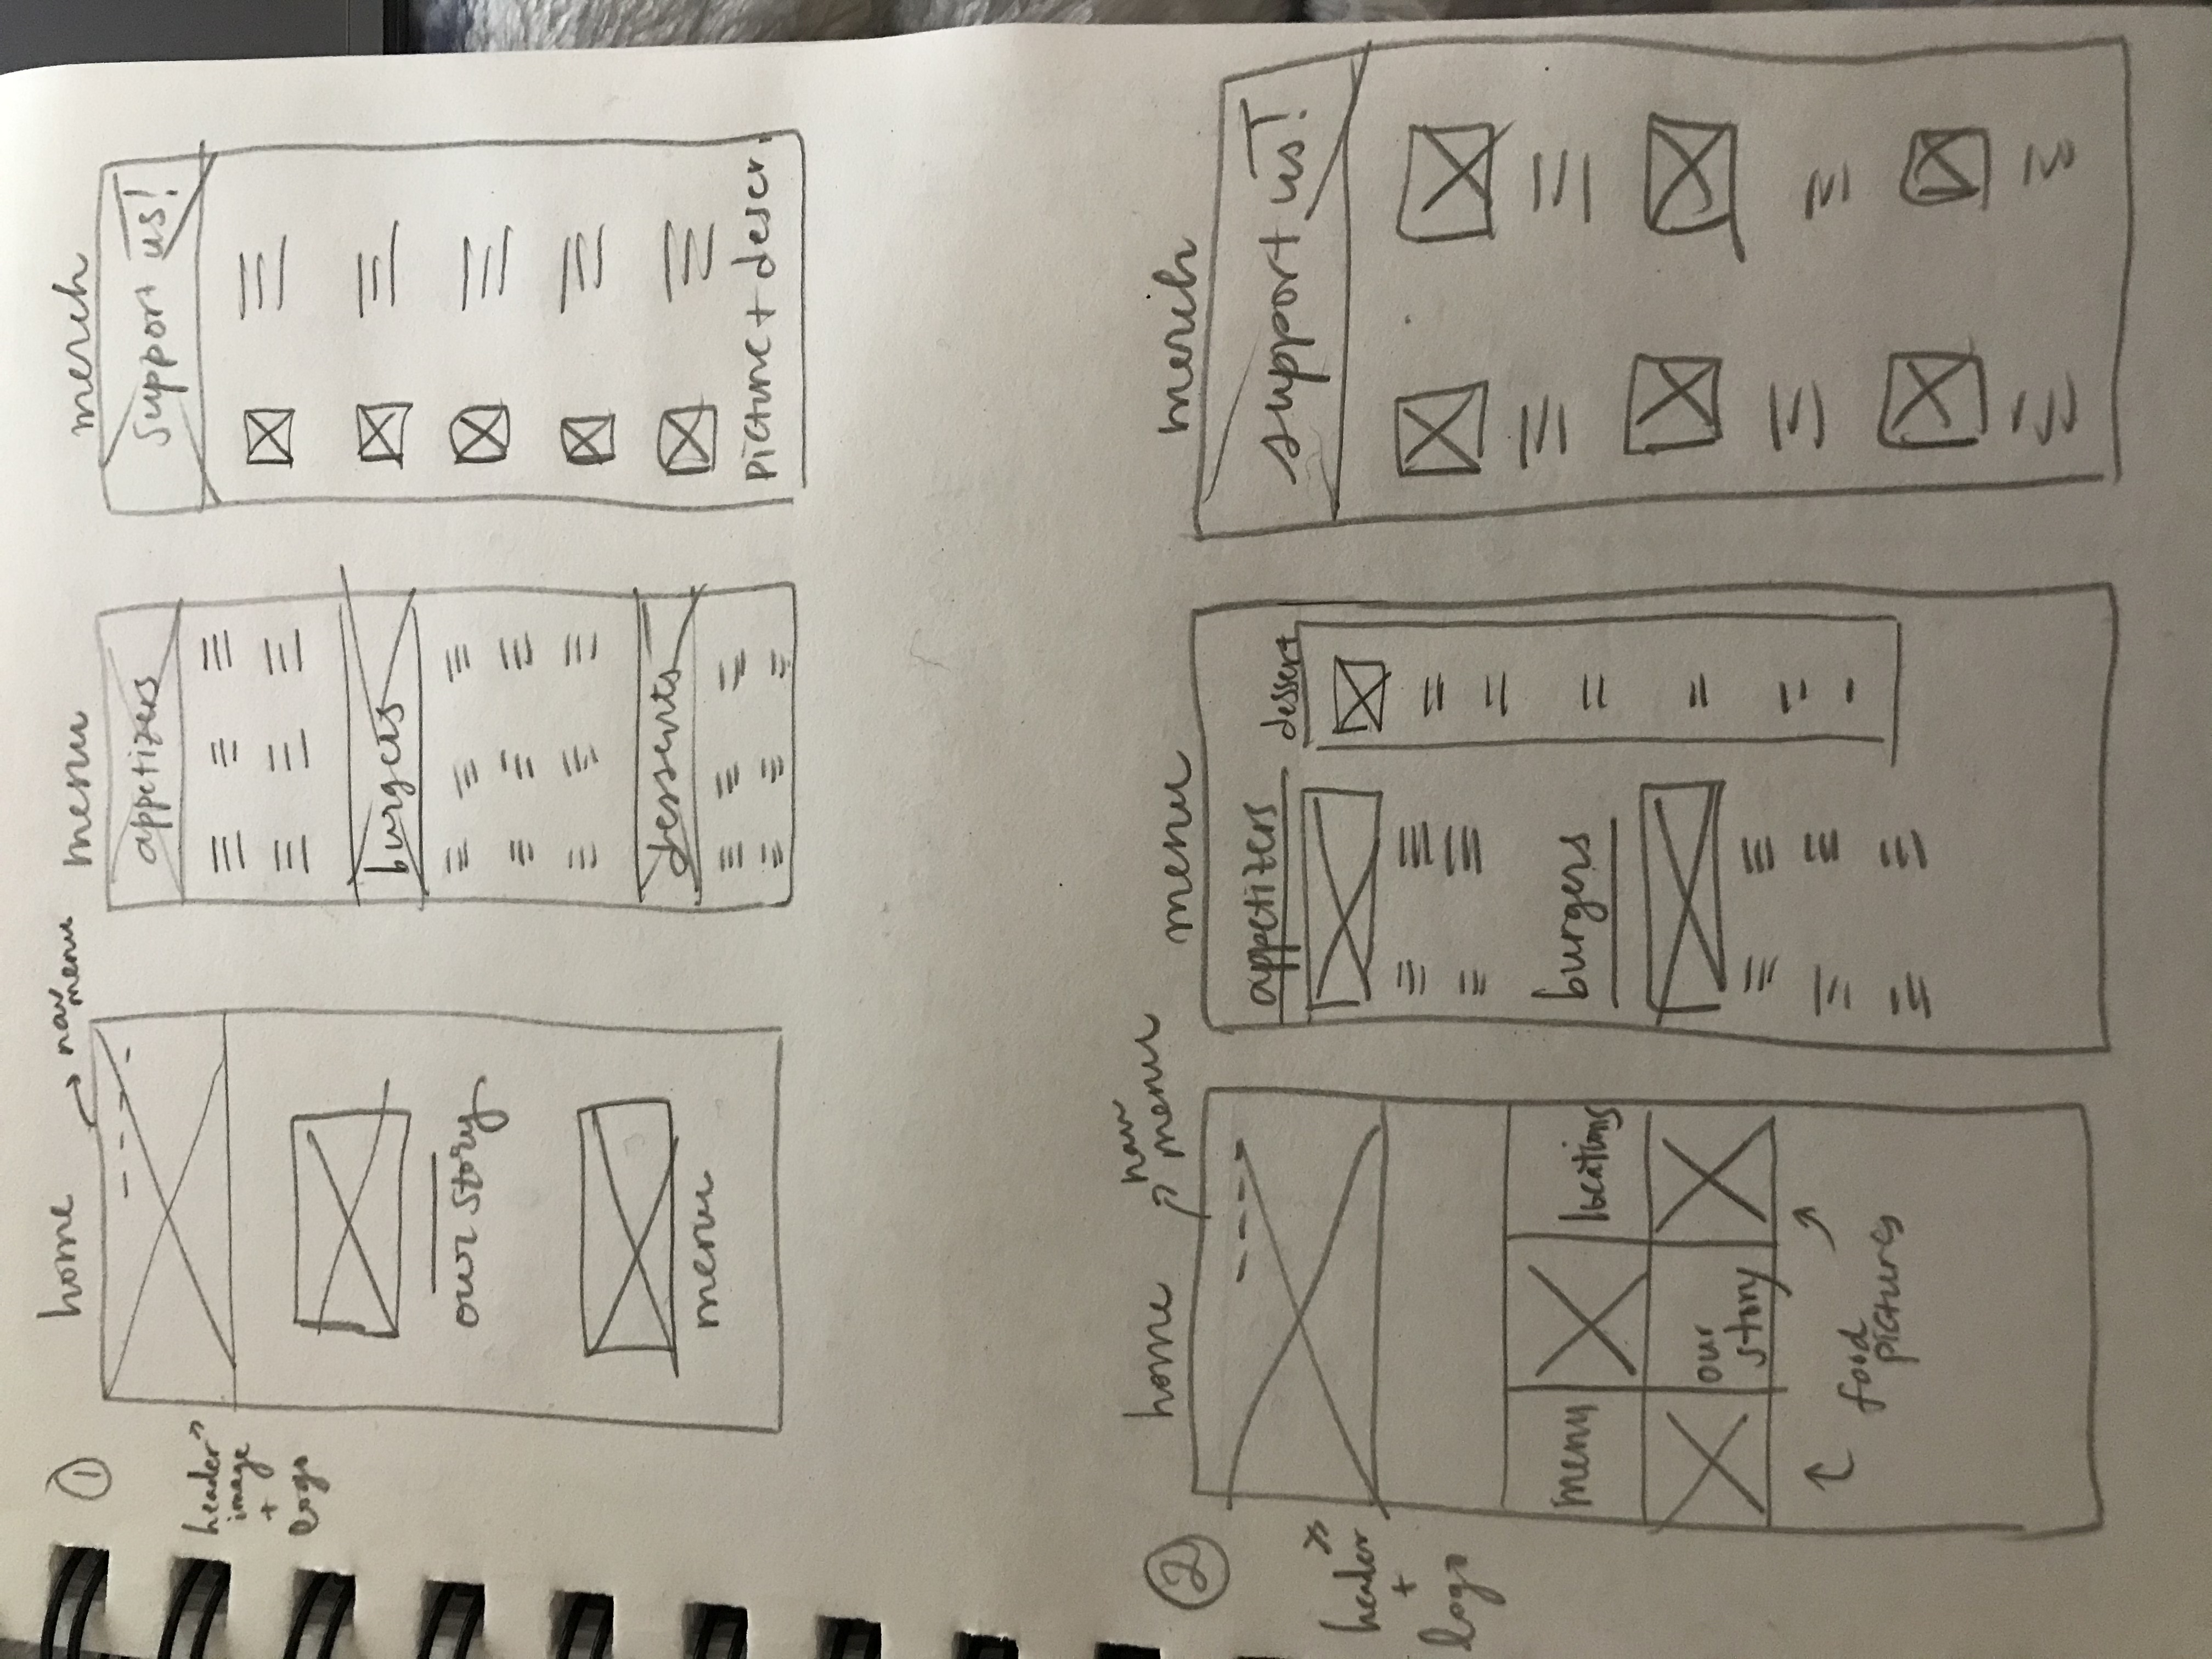 ①
home
nav
menu
header
image
+
logo
our story
menu
menu
appetizers
burgers
desserts
merch
support us!
picture + descr.
②
home
nav
menu
header
+
logo
menu
locations
our
story
food
pictures
menu
appetizers
dessert
burgers
merch
support us!